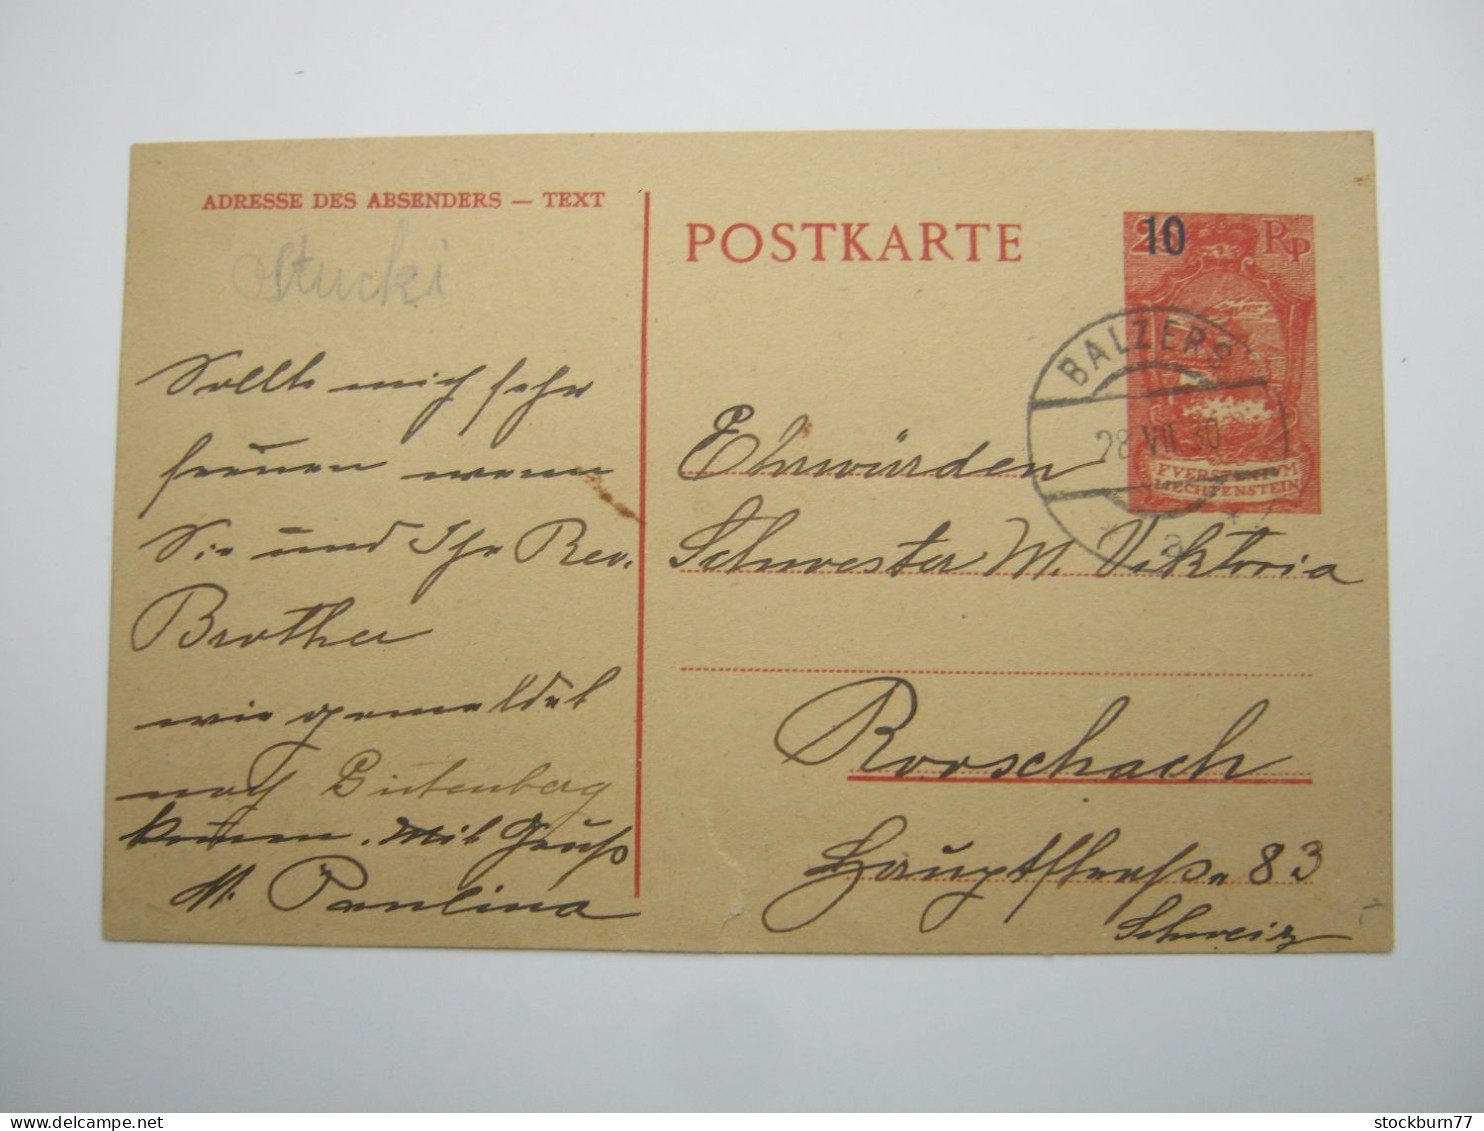 ADRESSE DES ABSENDERS — TEXT
Stucki
Sollte mich sehr
freuen wenn
Sie und Ihr Rev.
Brother
wie gemeldet
nach Gutenberg
können. Mit Gruß
M. Paulina
POSTKARTE
10 Rp
BALZERS
28.VII.30
a
FVERSTENTVM
LIECHTENSTEIN
Ehrwürden
Schwester M. Viktoria
Rorschach
Hauptstraße 83
Schweiz
stockburn77